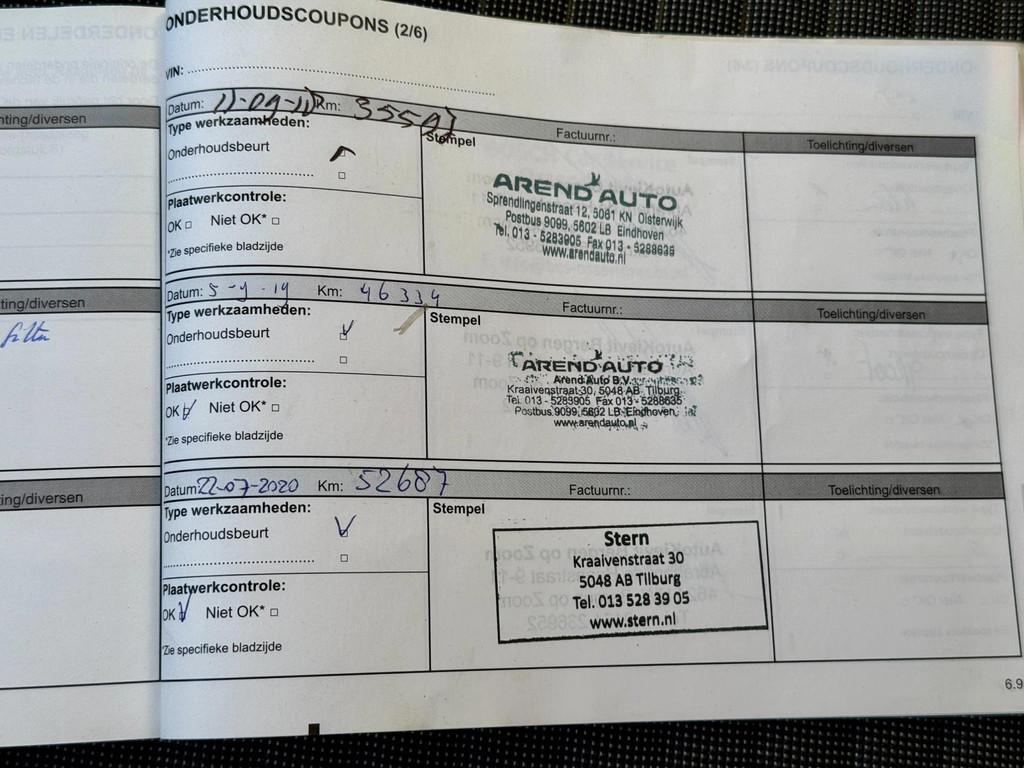 ONDERHOUDSCOUPONS (2/6)
VIN:
Datum: Km:
Factuurnr.:
Toelichting/diversen
Type werkzaamheden:
Stempel
Onderhoudsbeurt
Plaatwerkcontrole:
OK Niet OK*
*Zie specifieke bladzijde
AREND AUTO
Sprendlingenstraat 12, 5061 KN Oisterwijk
Postbus 9099, 5602 LB Eindhoven
Tel. 013 - 5283905 Fax 013 - 5288635
www.arendauto.nl
Datum: Km: 46334
Factuurnr.:
Toelichting/diversen
Type werkzaamheden:
Stempel
Onderhoudsbeurt
Plaatwerkcontrole:
OK Niet OK*
*Zie specifieke bladzijde
AREND AUTO
Arend Auto B.V.
Kraaivenstraat 30, 5048 AB Tilburg
Tel. 013 - 5283905 Fax 013 - 5288635
Postbus 9099, 5602 LB Eindhoven
www.arendauto.nl
Datum: 22-07-2020 Km: 52687
Factuurnr.:
Toelichting/diversen
Type werkzaamheden:
Stempel
Onderhoudsbeurt
Plaatwerkcontrole:
OK Niet OK*
*Zie specifieke bladzijde
Stern
Kraaivenstraat 30
5048 AB Tilburg
Tel. 013 528 39 05
www.stern.nl
6.9
hting/diversen
ting/diversen
filter
ing/diversen